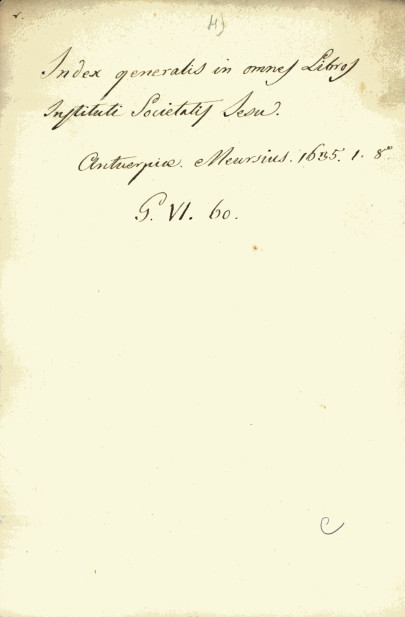 H)
Index generalis in omnes Libros
Instituti Societatis Jesu.
Antuerpiæ. Meursius. 1635. 1. 8°
G. VI. 60.
C